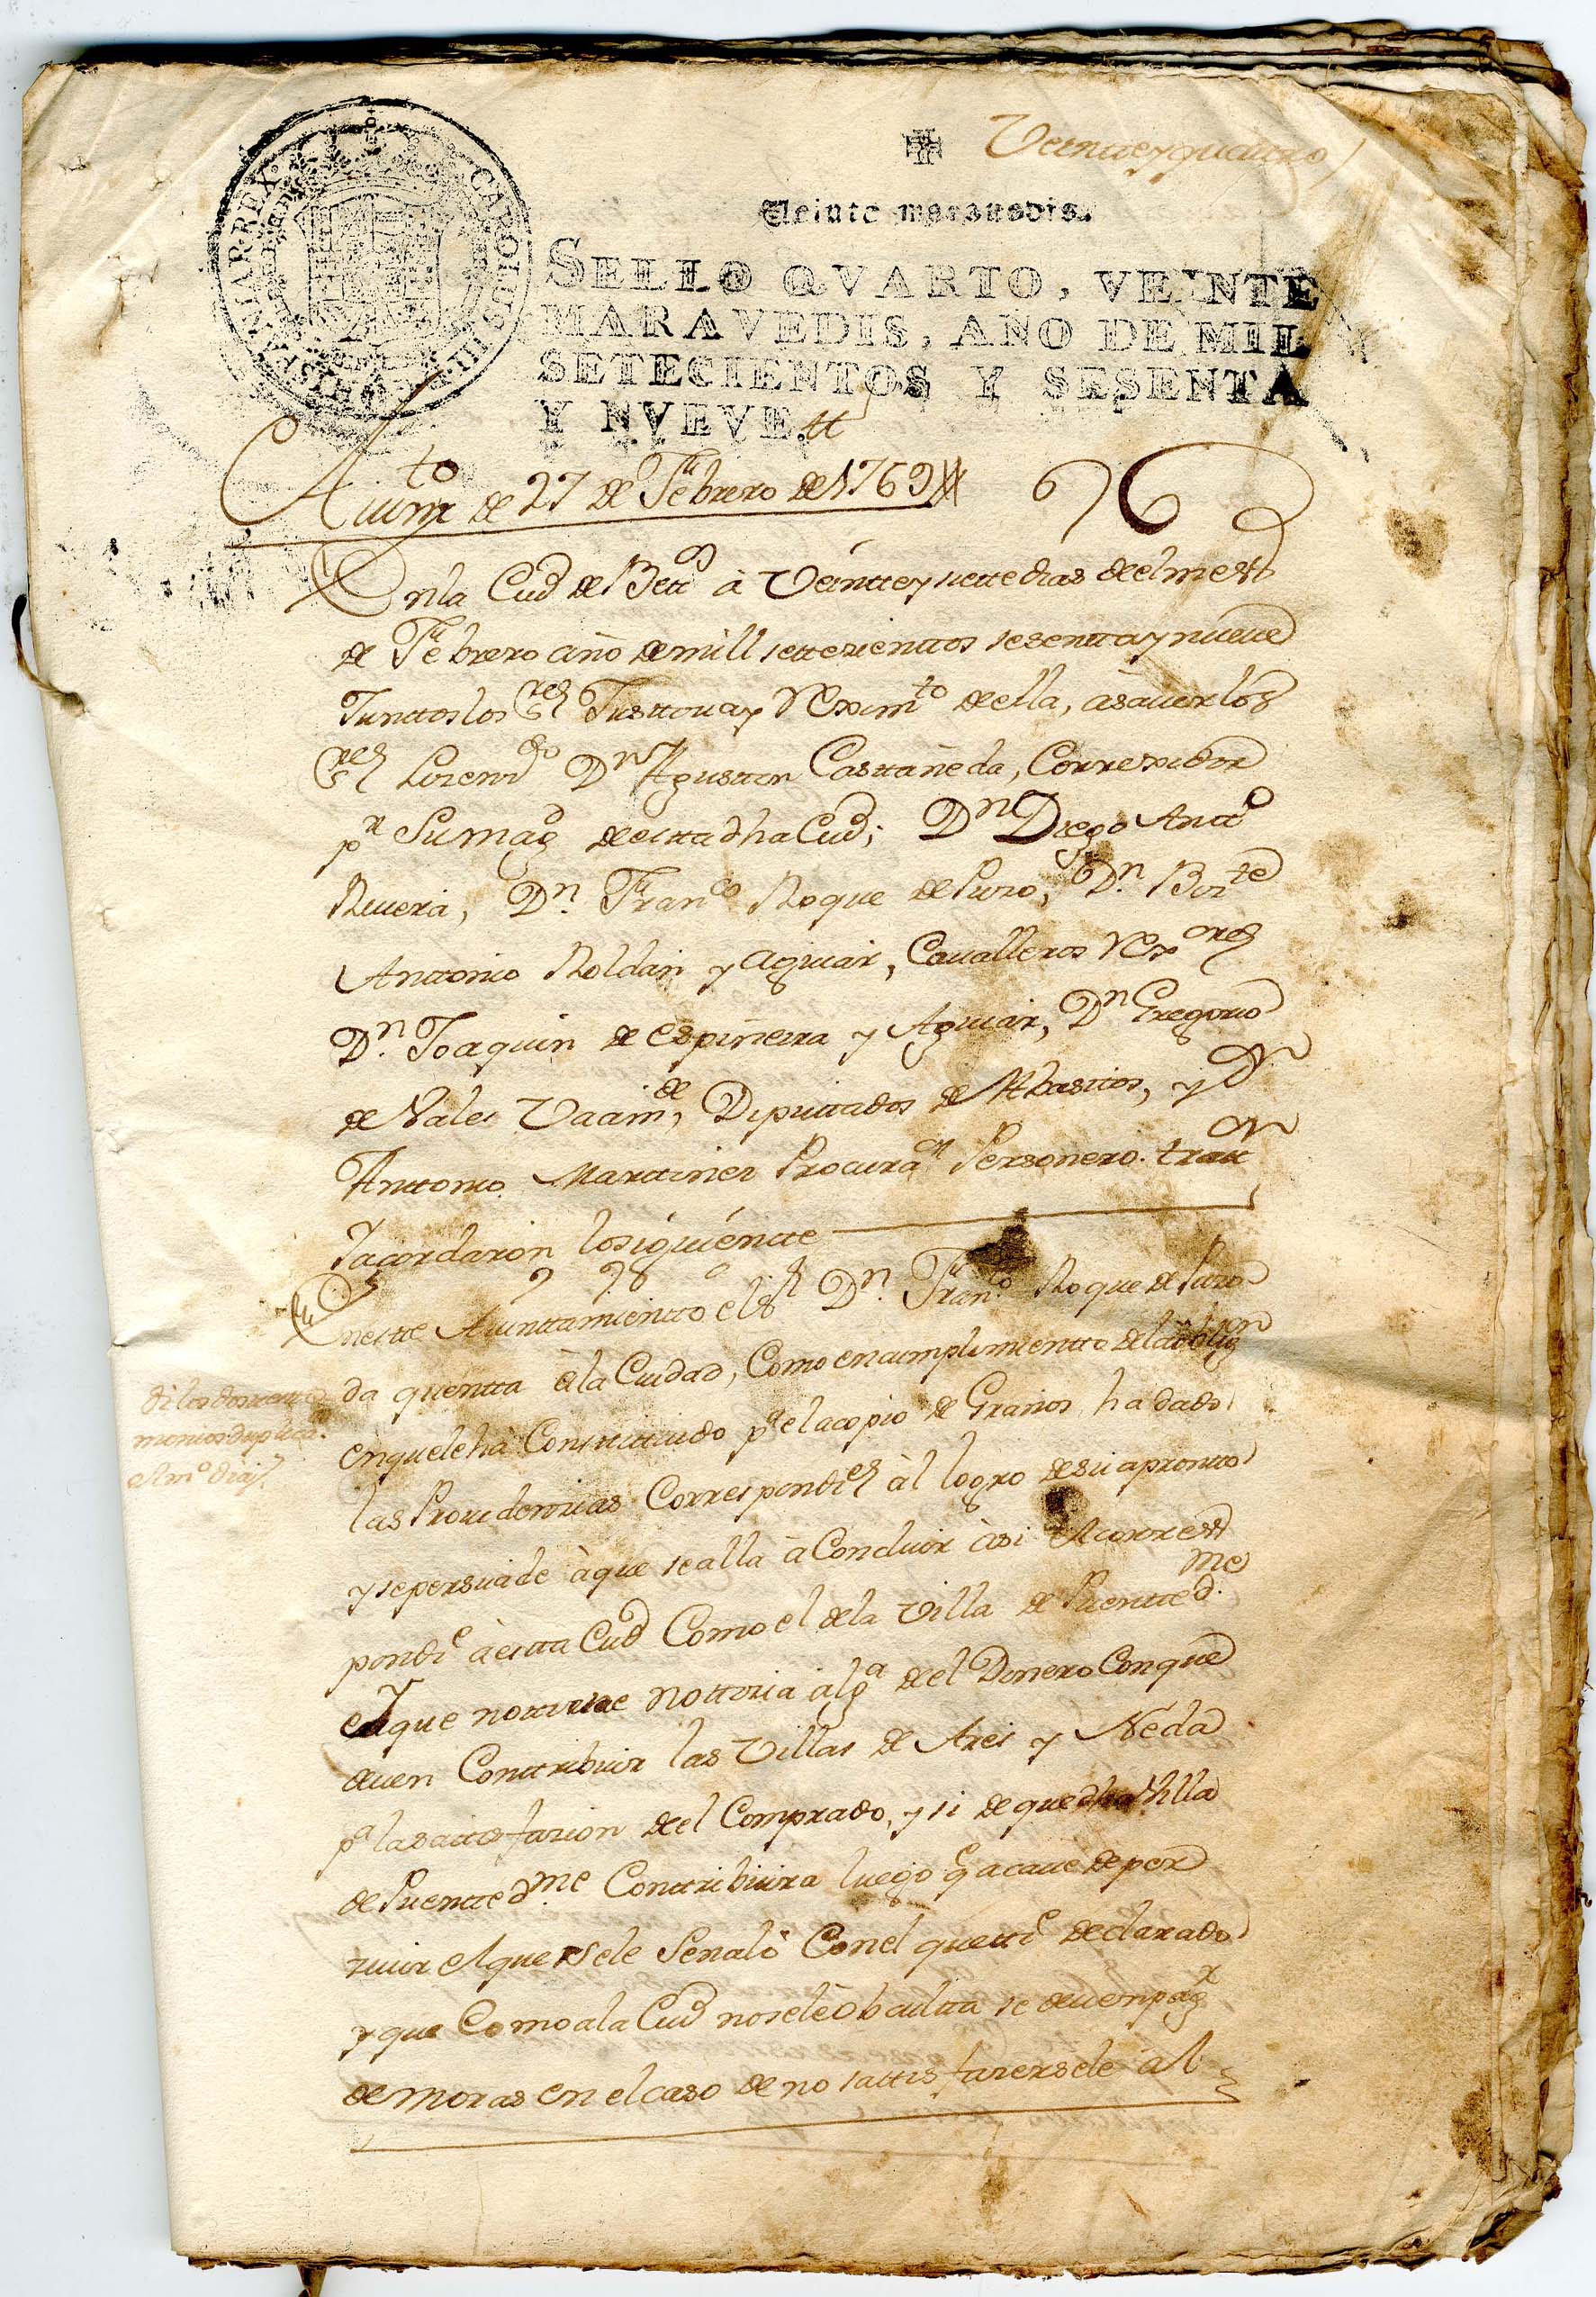 Veintte y quattro
Veinte maravedis.
SELLO QVARTO, VEINTE
MARAVEDIS, AÑO DE MIL
SETECIENTOS Y SESENTA
Y NVEVE.
CAROLUS III D G HISPANIAR REX
Aiumto de 27 de Febrero de 1769
En la Ciud de Bettos à Veintte y siette dias de el mes
de Febrero año de mill settezienttos sesentta y nueve
Junttos los Sres Justtizia y Reximto de ella, àsaver los
Sres Lizencdo Dn Agusttin Casttañeda, Correxidor
pr Su Magd de estta dha Ciud; Dn Diego Antto
Rivera, Dn Franco Roque de Puzo, Dn Borte
Anttonio Roldan y Aguiar, Cavalleros Rexores
Dn Joaquin de Espiñeira y Aguiar, Dn Gregorio
de Vales Vaamde, Diputtados de Abasttos, y Dn
Anttonio Marttinez Procuraor Personero. trattn
Yacordaron lo siguientte
En estte Aiunttamientto el Sr Dn Franco Roque de Puzo
da quentta à la Ciudad, Como en cumplimientto de la oblign
en que le hà Consttittuido pa el acopio de Granos ha dado
las Providenzias Correspondtes àl logro de su apronto
y se persuade à que se alla à Concluir àsi el corres
pondte à estta Ciud Como el de la Villa de Puenttedme
Y que no ttiene nottizia alga de el Dinero Con que
deven Conttribuir las Villas de Ares y Neda
pa la sattisfazion de el Comprado, y si de que dha Villa
de Puenttedme Conttribuira luego q acave de per
zivir el que se le Señalò Con el que ttte declarado
y que Como a la Ciud no se le òbcultta se deven pagr
demoras en el caso de no sattisfazersele àl